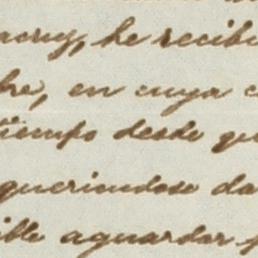 he recibi
en cuya c
tiempo desde qu
queriendose da
ible aguardar